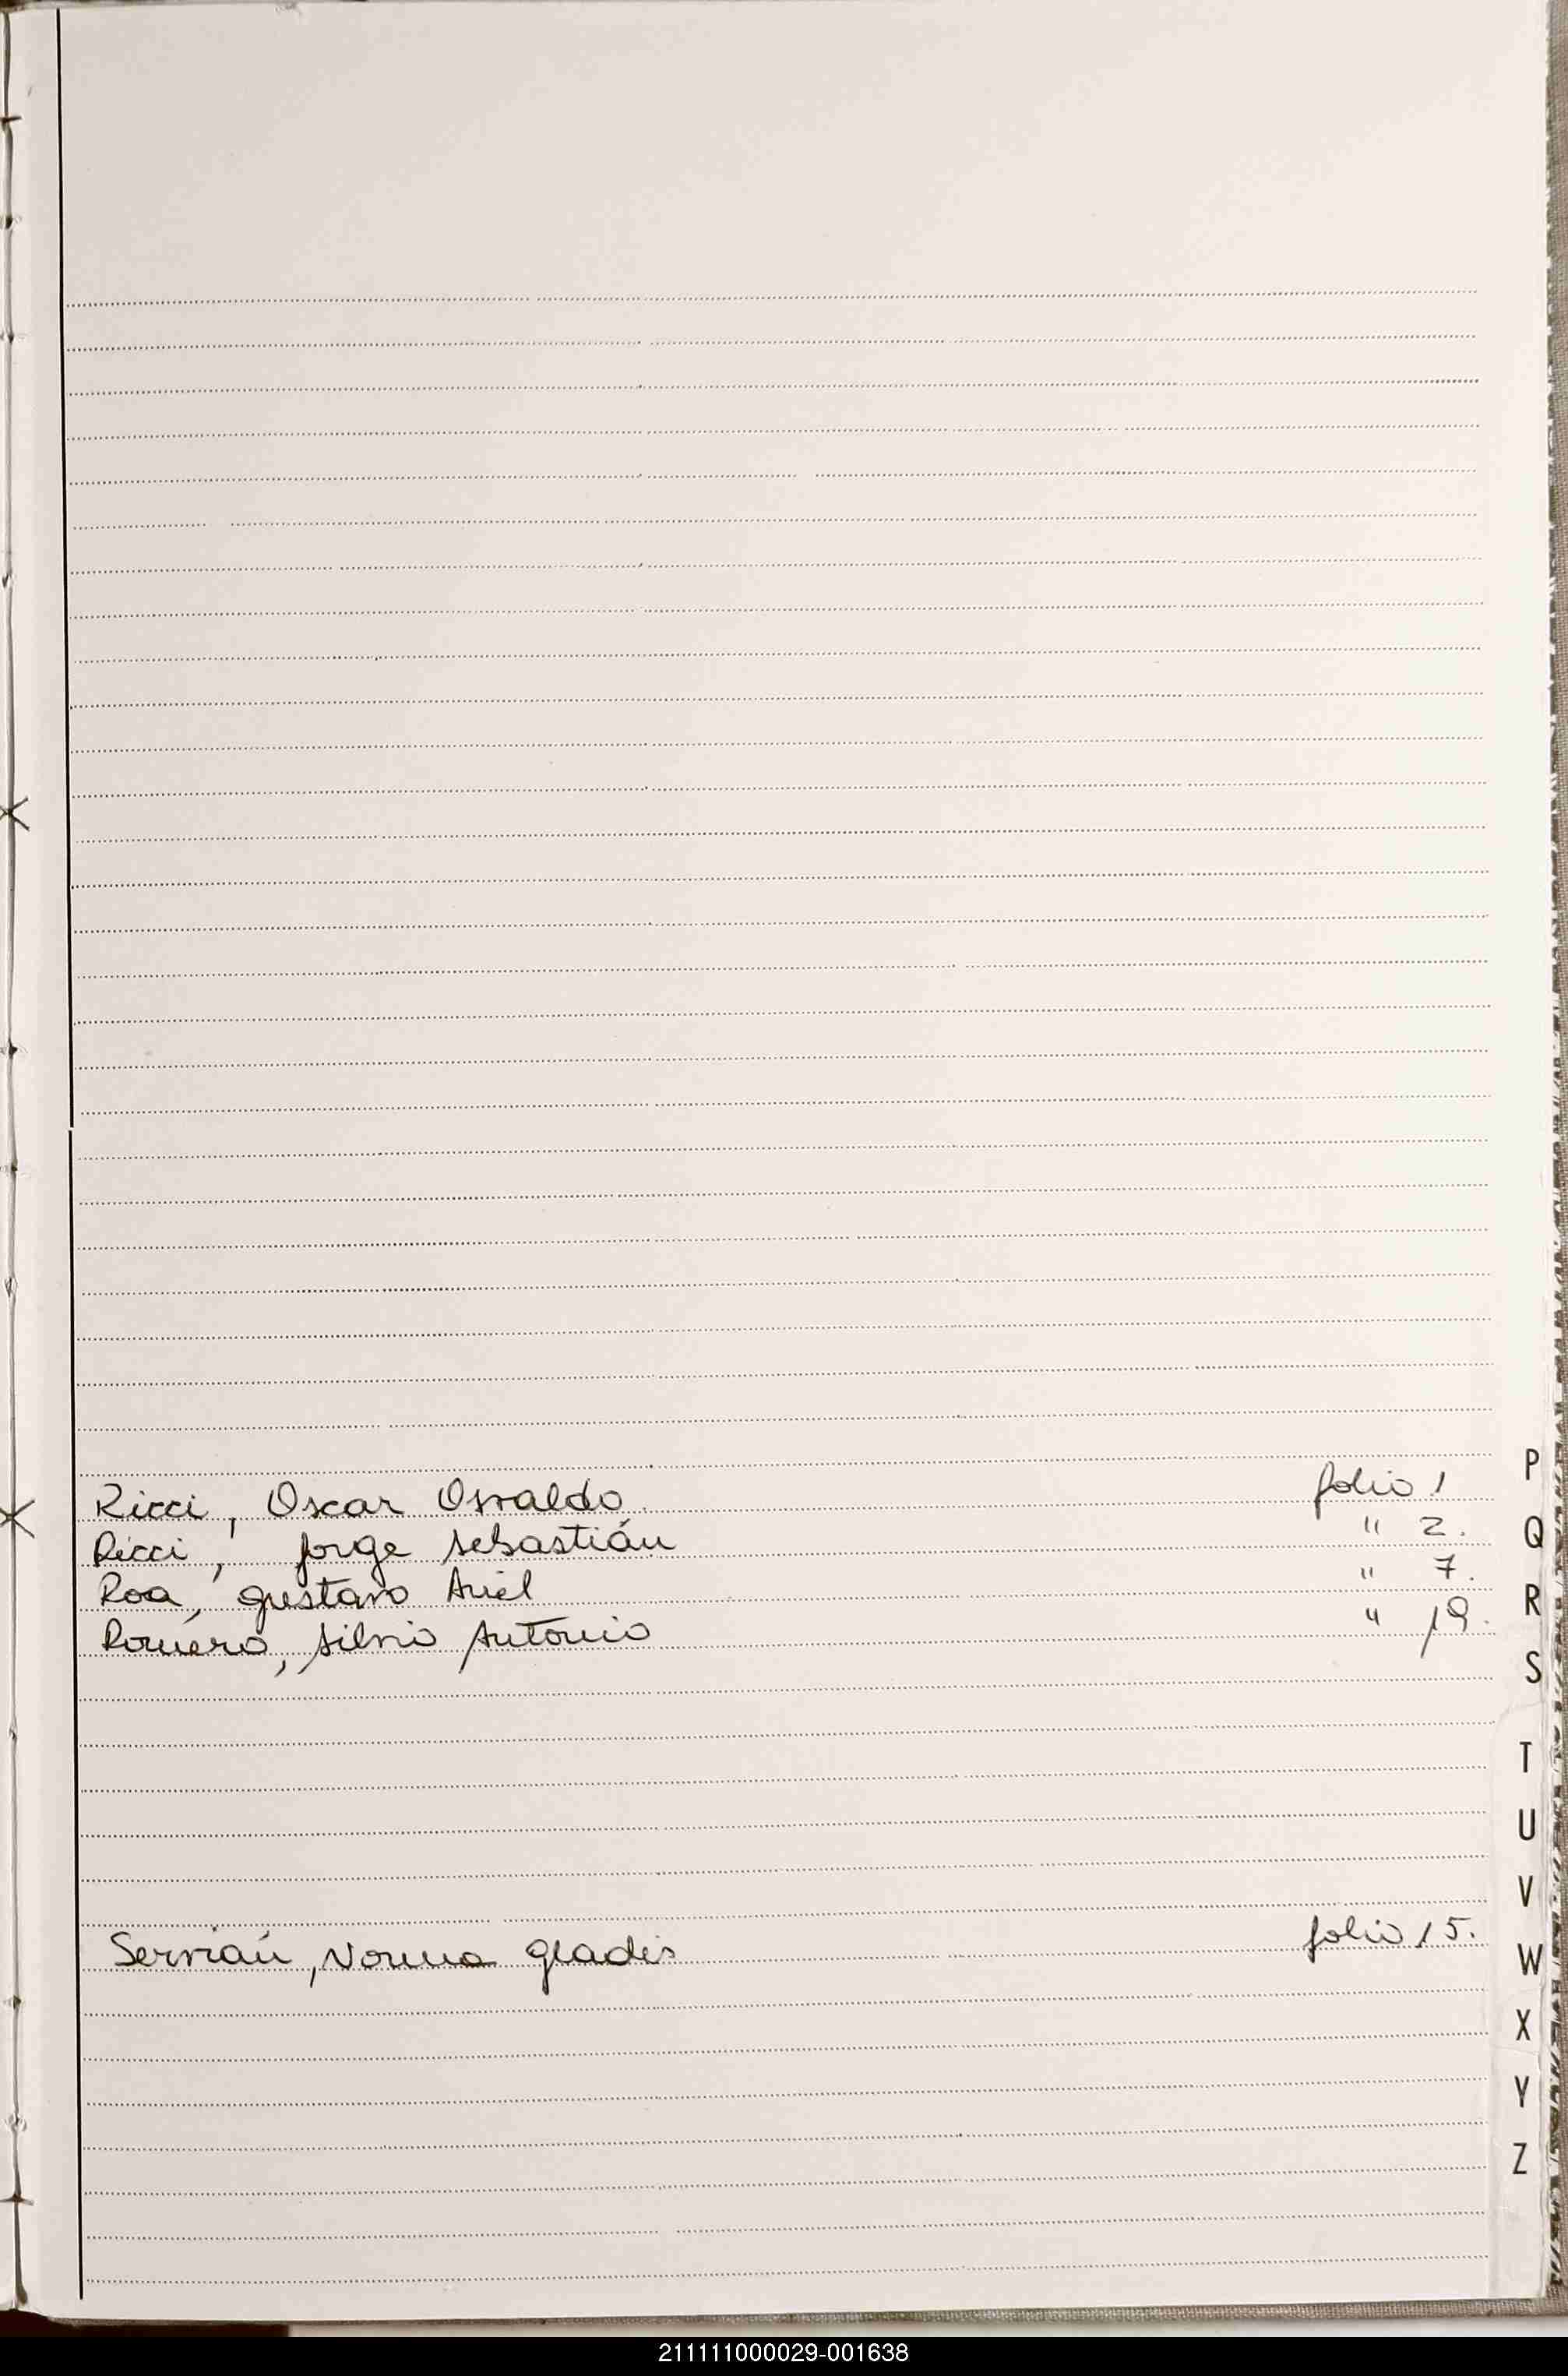 Ricci, Oscar Osvaldo folio 1
Ricci, Jorge Sebastián " 2.
Roa, Gustavo Ariel " 7.
Romero, Silvio Antonio " 19.
Servián, Norma Gladis folio 15.
P
Q
R
S
T
U
V
W
X
Y
Z
211111000029-001638